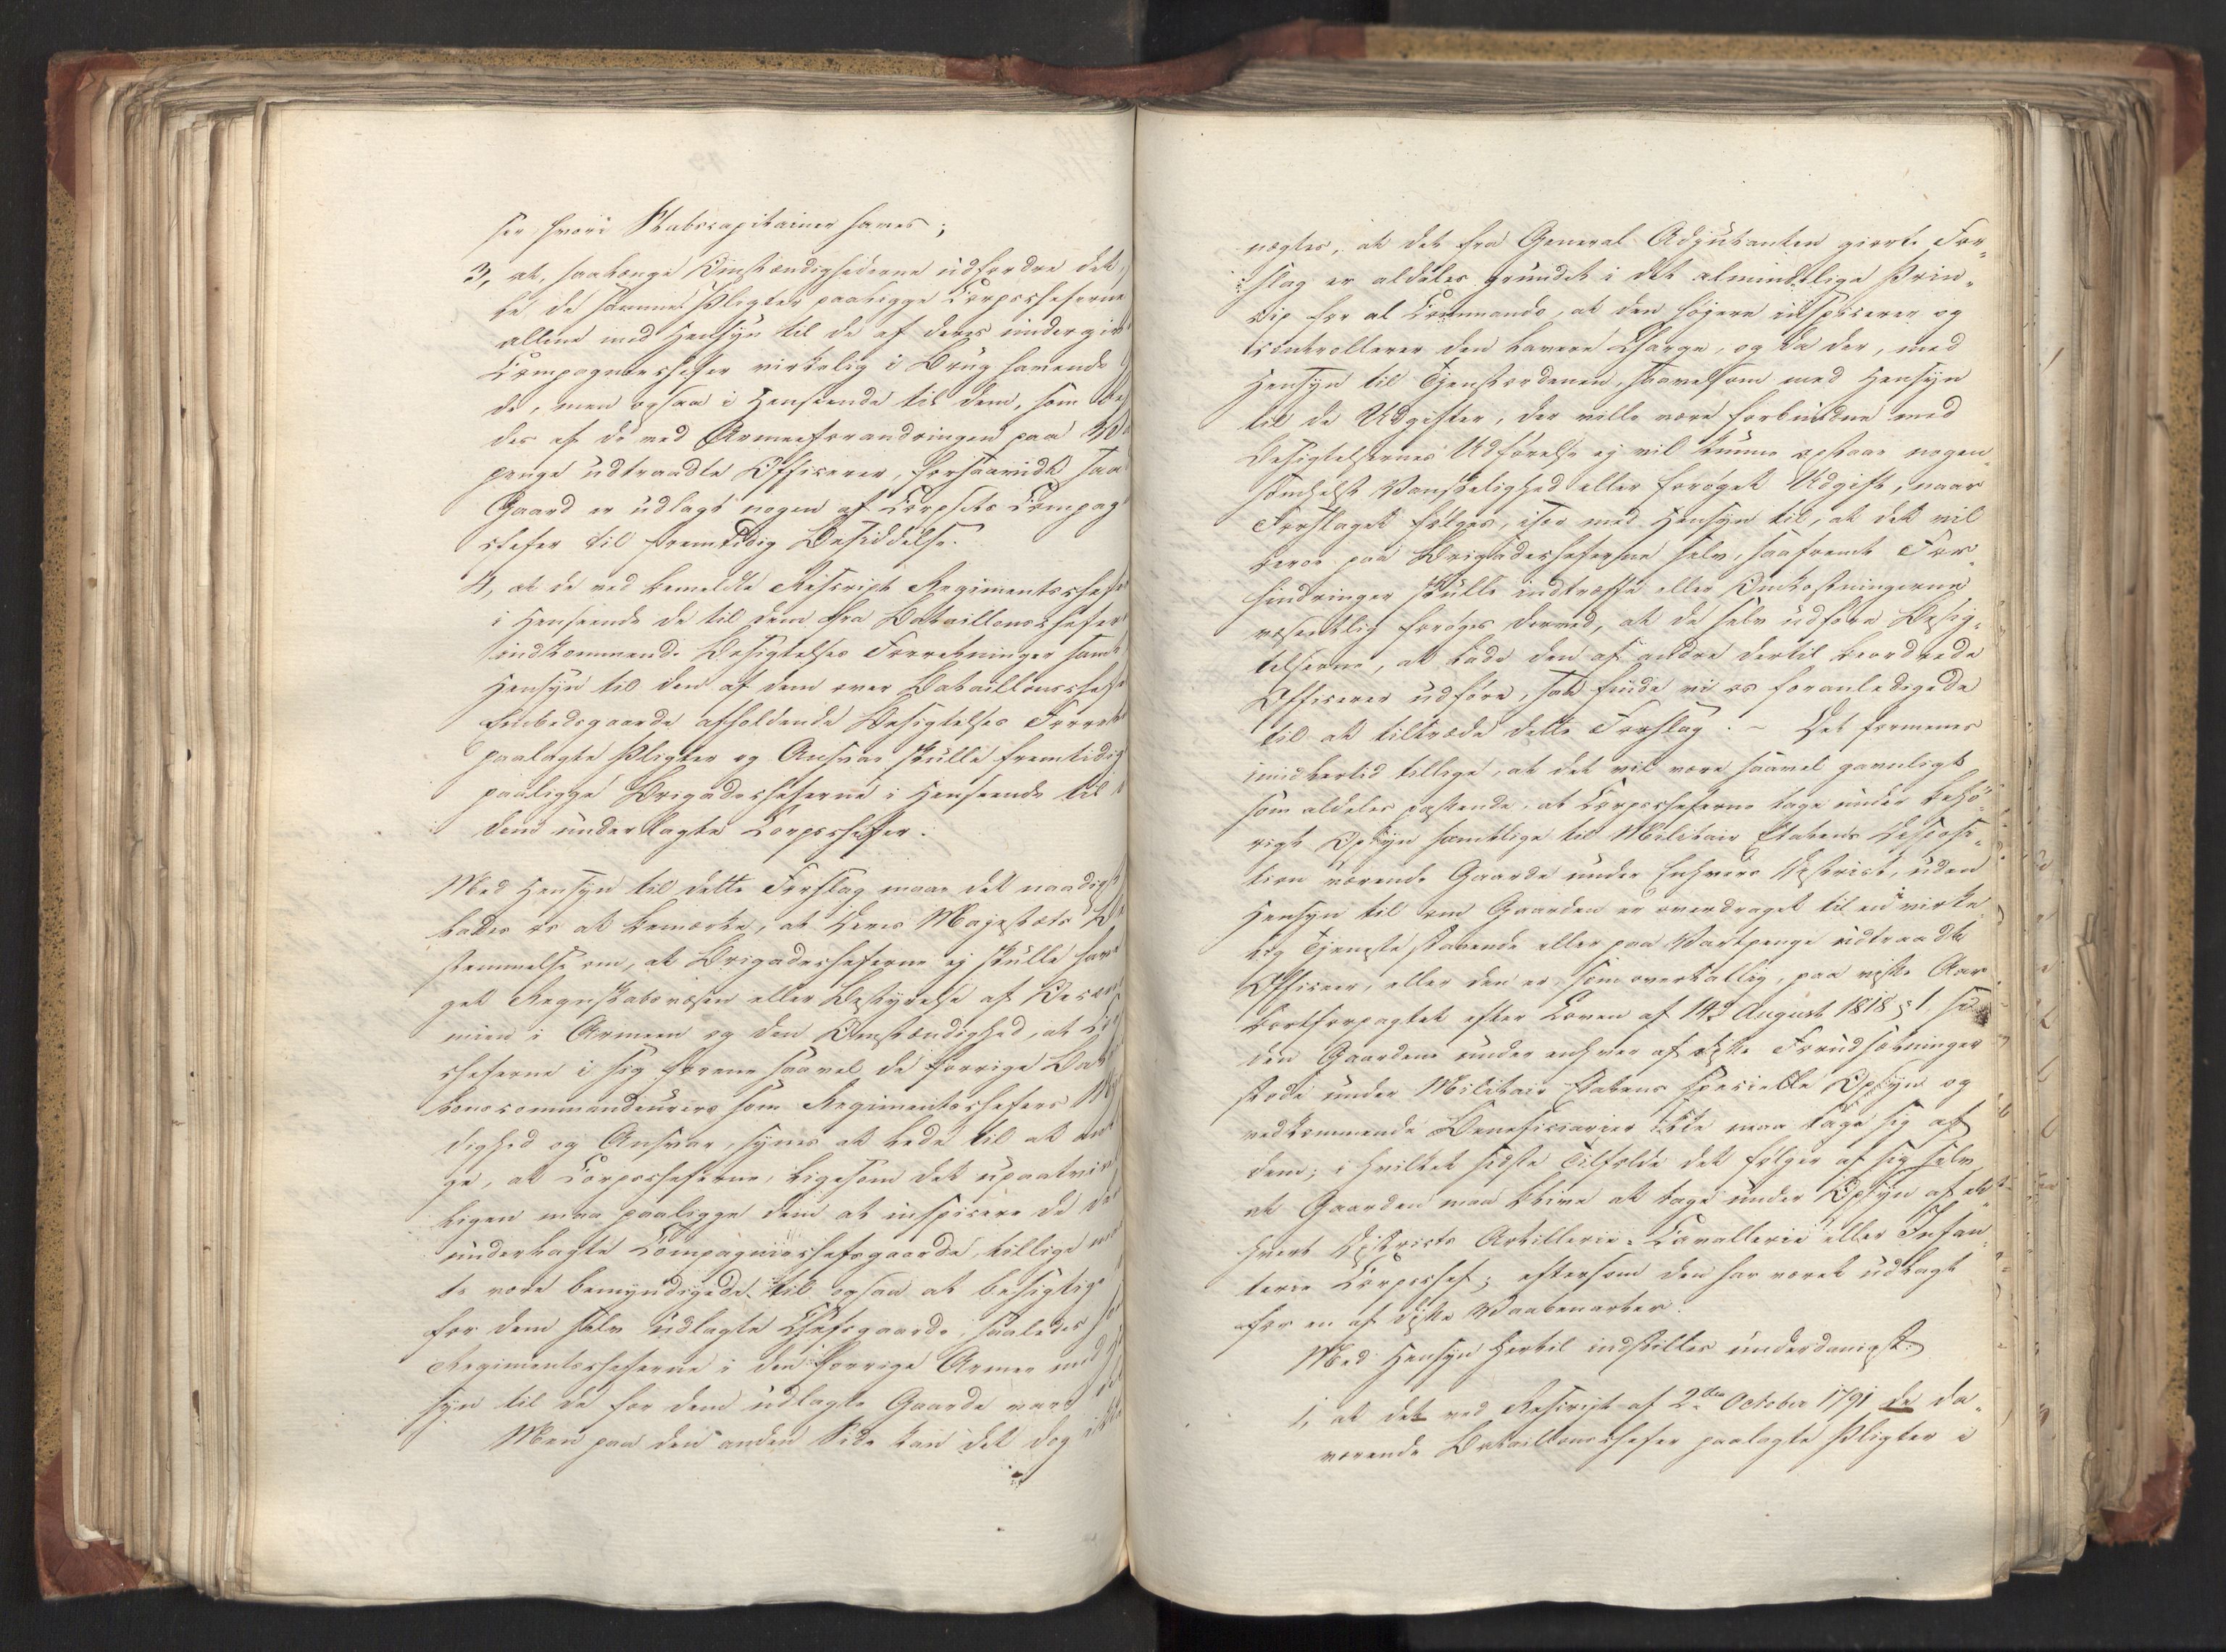 ser hvori Stabscapitainer haves;
3, at, saalænge Omstændighederne udfordre det,
de samme Pligter paaligge Corpscheferne
allene med Hensyn til de af deres undergiv
Compagniechefer virkelig i Brug havende
de, men ogsaa i Henseende til dem, som
des af de ved Armeeforandringen paa
penge udtraadte Officerer, forsaavidt saa
Gaard er udlagt nogen af Corpsets Compag
chefer til fremtidig Besiddelse.
4, at de ved bemeldte Rescript Regimentschef
i Henseende de til dem fra Bataillonschefer
indkommende Besigtelses Forretninger samt
Hensyn til den af dem over Bataillonschef
Embedsgaarde afholdende Besigtelses Forret
paalagte Pligter og Ansvar skulle fremtidig
paaligge Brigadecheferne i Henseende til
dem underlagte Corpschefer.
Med Hensyn til dette Forslag maae det naadigst
lades os at bemærke, at Deres Majestæts Be
stemmelse om, at Brigadecheferne ej skulle have
get Regnskabsvæsen eller Bestyrelse af
mien i Armeen og den Omstændighed, at
cheferne i sig forene saavel de forrige Bat
lonscommandeurers som Regimentschefers
dighed og Ansvar, synes at lede til at ant
ge, at Corpscheferne, ligesom det upaatviv
ligen maa paaligge dem at inspicere de
underlagte Compagniechefsgaarde, tillige
te være bemyndigede til ogsaa at besigtige
for dem selv udlagte Chefsgaarde, saaledes
Regimentscheferne i den forrige Armee med
syn til de for dem udlagte Gaarde vare
Men paa den anden Side kan det dog ikke
nægtes, at det fra General-Adjutanten gjorte For-
slag er aldeles grundet i det almindelige Prin-
cip for al Commando, at den høiere inspicerer og
controllerer den lavere Charge, og da der, med
Hensyn til Tjenstordenen, saavelsom med Hensyn
til de Udgifter, der ville være forbundne med
Besigtelsernes Udførelse ej vil kunne opstaae nogen-
somhelst Vanskelighed eller forøget Udgift, naar
Forslaget følges, især med Hensyn til, at det vil
beroe paa Brigadecheferne selv, saafremt For-
hindringer skulle indtræffe eller Omkostningerne
væsentlig forøges derved, at de selv udføre Besig-
telserne, at lade den af andre dertil beordrede
Officerer udføre, saa finde vi os foranledigede
til at tiltræde dette Forslag. – Det formenes
imidlertid tillige, at det vil være saavel gavnligt
som aldeles passende, at Corpscheferne tage under behø-
rigt Opsyn samtlige til Militair Etatens Disposi-
tion værende Gaarde under Enhvers District, uden
Hensyn til om Gaarden er overdraget til en virke-
lig Tjeneste havende eller paa Vartpenge udtraadt
Officeer, eller den er, som overtallig, paa visse Aar
bortforpagtet efter Loven af 14d August 1818 § 1,
den Gaardene under enhver af disse Forudsætninger
stode under Militair Etatens specielle Opsyn og
vedkommende Beneficiarier ikke maa tage sig af
dem; i hvilket sidste Tilfælde det følger af sig selv
at Gaarden maa blive at tage under Opsyn af et-
hvert Districts Artillerie- Cavallerie eller Infan-
terie Corpschef; eftersom den har været udlagt
for en af disse Vaabenarter.
Med Hensyn hertil indstilles underdanigst:
1, at det ved Rescript af 2den October 1791 de da-
værende Bataillonschefer paalagte Pligter i